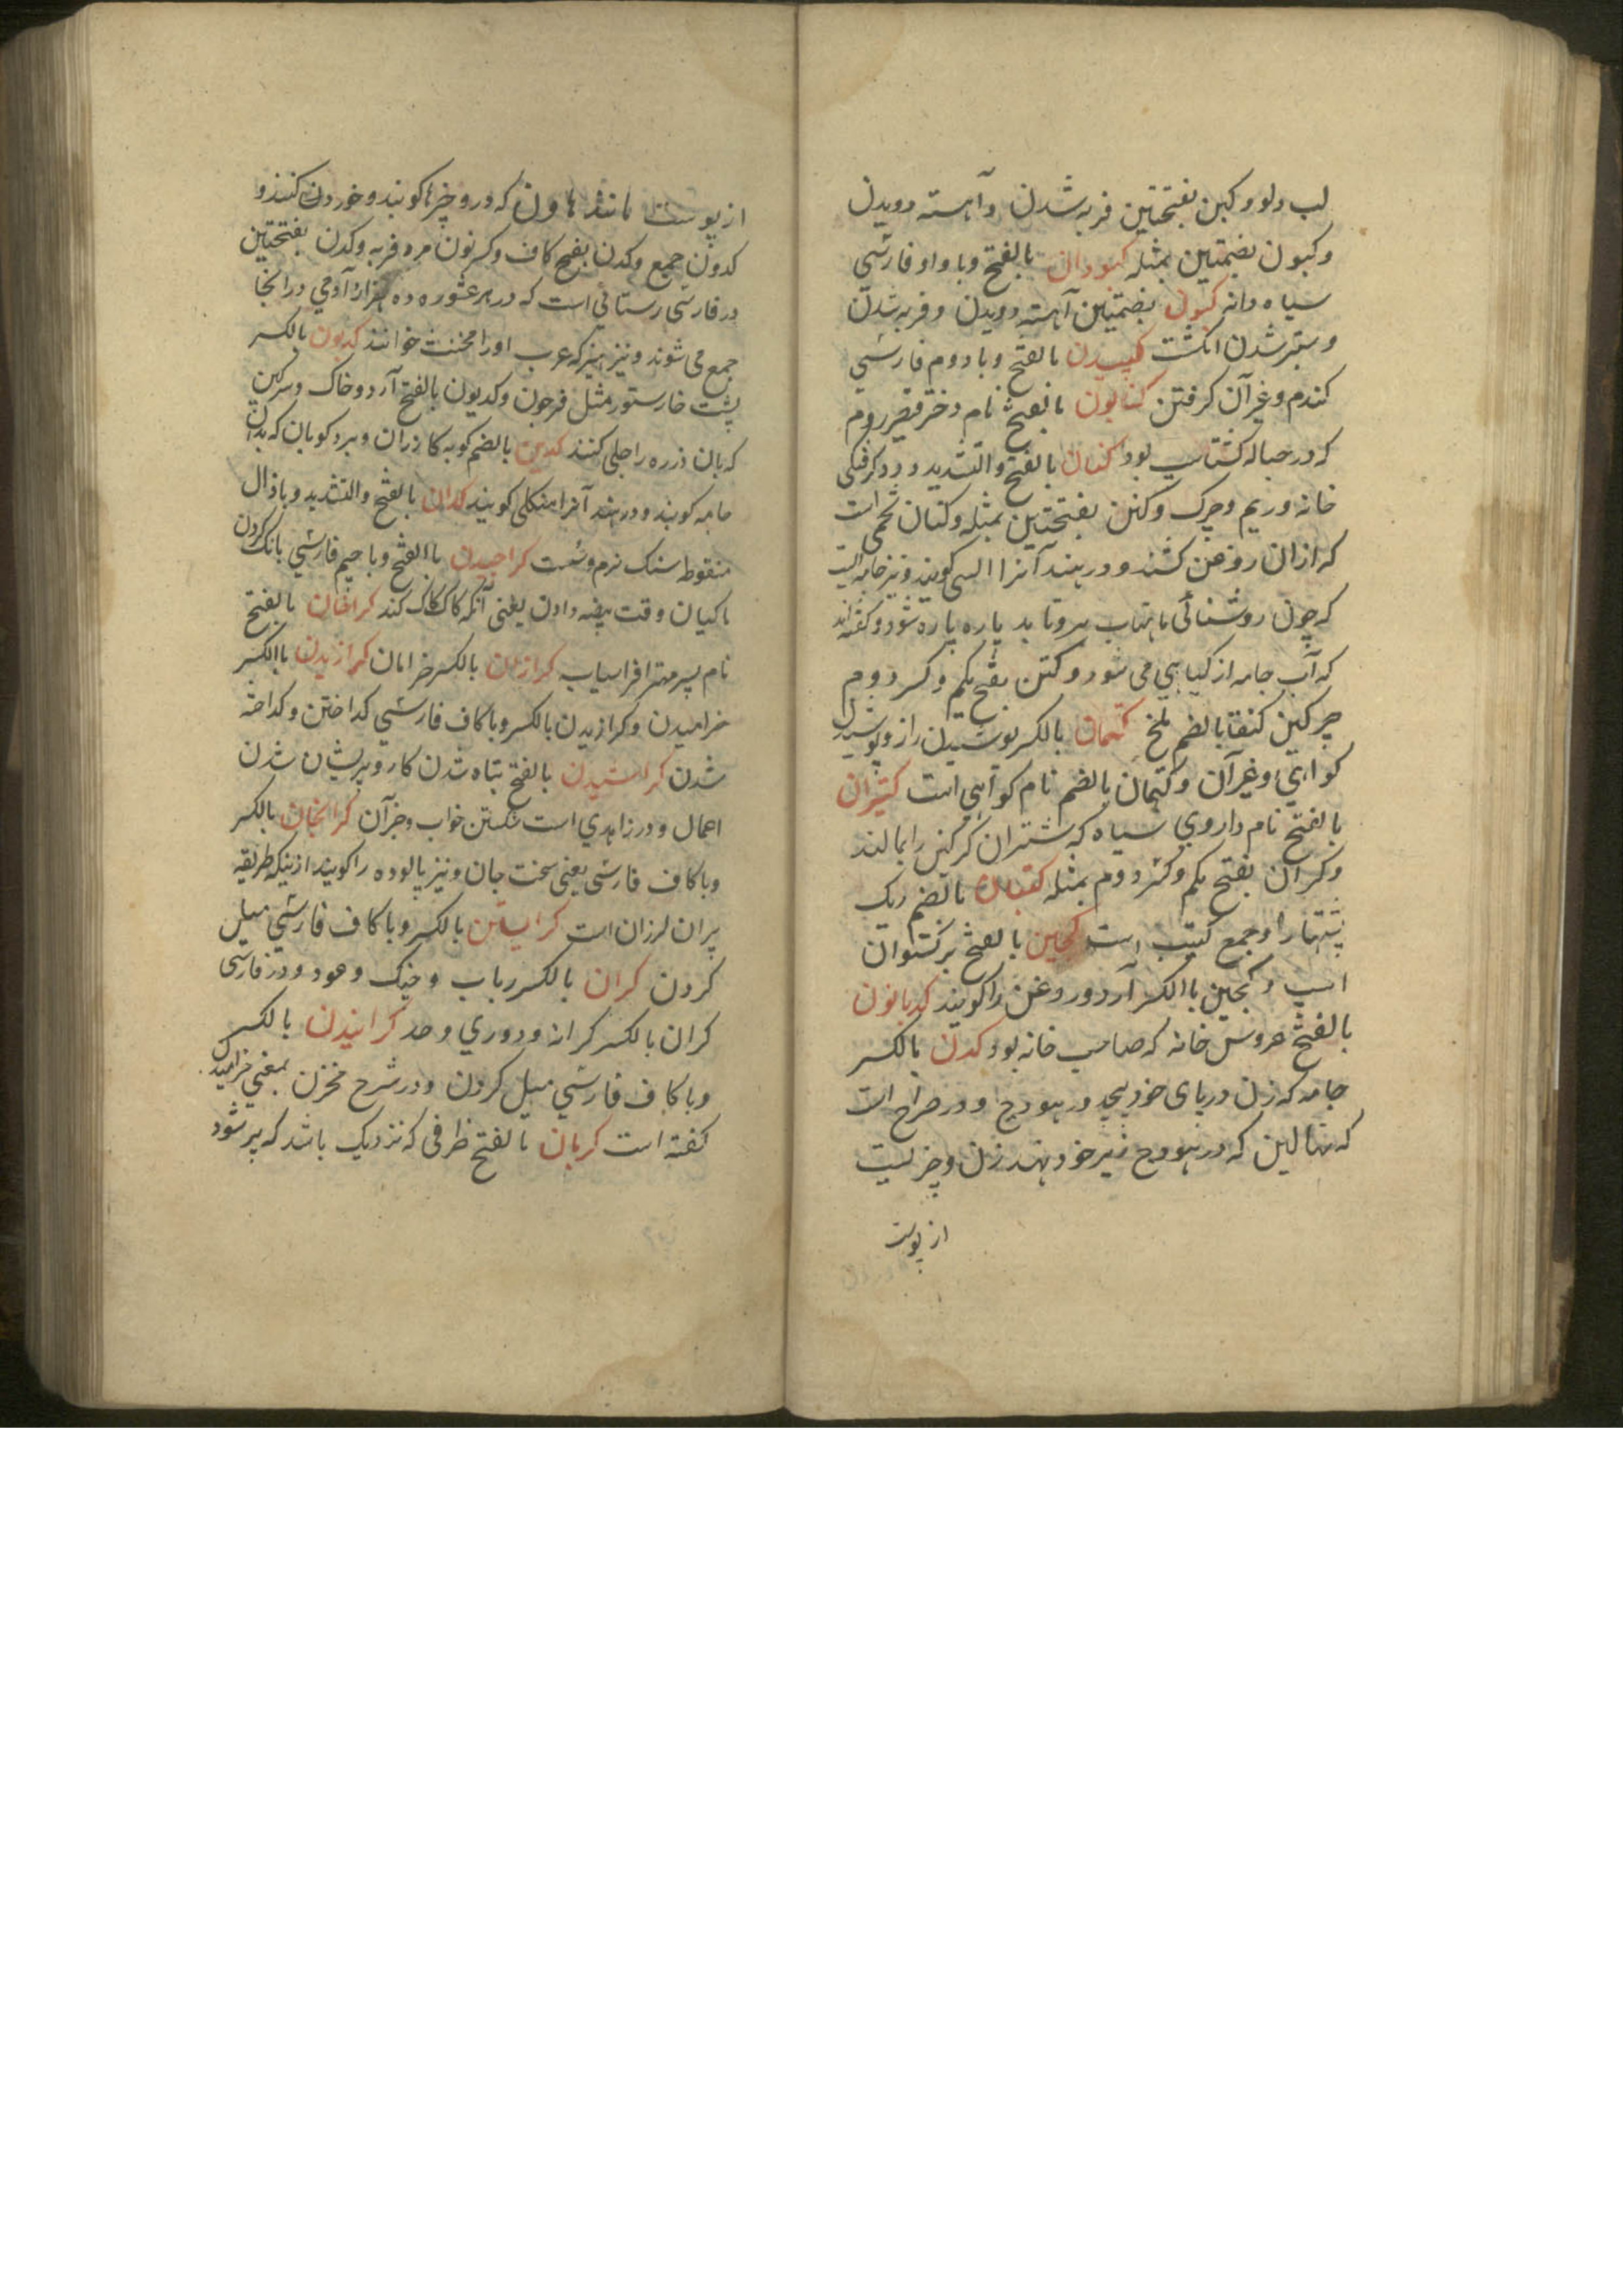 لب دلو و کبن بفتحتین فربه شدن و آهسته دویدن
و کبون بضمتین بمثله کبودان بالفتح و با واو فارسی
سیاه دانه کبون بضمتین آهسته دویدن و فربه شدن
و ستبر شدن انکشت کپیدن بالفتح و با دوم فارسی
کندم و غیر آن کرفتن کتایون بالفتح نام دختر قیصر روم
که در حباله کشتاسب بود کتان بالفتح و التشدید و دود کرفتکی
خانه و ریم و چرک و کتن بفتحتین بمثله و کتان تخمی است
که ازان روغن کشند و در هند آنرا السی کویند و نیز جامه ایست
که چون روشنائی ماهتاب برو تابد پاره پاره شود و کفته اند
که آب جامه از کیاهی می شود و کتن بفتح یکم و کسر دوم
چرکین کنقا بالضم ملخ کتمان بالکسر پوشیدن راز و پوشیدن
کواهی و غیر آن و کتمان بالضم نام کوهی است کتیران
بالفتح نام داروی سیاه که شتران کرکین را بمالند
و کران بفتح یکم و کسر دوم بمثله کثبان بالضم ریک
پشتها را و جمع کثیب است کجین بالفتح برکستوان
اسپ و کجین باالکسر آرد و روغن را کویند کدبانون
بالفتح عروس خانه که صاحب خانه بود کدن بالکسر
جامه که زن در پای خود پیچد در هودج و در صراح است
که نهالین که در هودج زیر خود نهد زن و چیزیست
از پوست
از پوست مانند هاون که درو چیزها کوبند و خوردن کنند و
کدون جمع و کدن بفتح کاف و کسر نون مرد فربه و کدن بفتحتین
در فارسی رستائی است که در هر عشوره ده هزار آدمی درانجا
جمع می شوند و نیز هیز که عرب اورا مخنث خوانند کدیون بالکسر
پشت خارستور مثل فرجون و کدیون بالفتح آرد و خاک و سرکین
که بان زره را جلی کنند کدین بالضم کوبه کازران و برد کوبان که بدان
جامه کوبند و در هند آنرا منکلی کویند کذان بالفتح و التشدید و باذال
منقوط سنک نرم و سست کراجیدن باالفتح و با جیم فارسی بانک کردن
ماکیان وقت بیضه دادن یعنی آنکه کاک کاک کند کراخان بالفتح
نام پسر مهتر افراسیاب کرازان بالکسر خرامان کرازیدن باالکسر
خرامیدن و کرازیدن بالکسر و با کاف فارسی کداختن و کداخته
شدن کراشیدن بالفتح تباه شدن کار و پریشان شدن
احمال و در زاهدی است شکستن خواب و جز آن کرانجان بالکسر
و با کاف فارسی یعنی سخت جان و نیز پالوده را کویند ازینکه طریقه
پیران لرزان است کرایستن بالکسر و با کاف فارسی میل
کردن کران بالکسر رباب و چنک و عود و در فارسی
کران بالکسر کرانه و دوری و حد کرائیدن بالکسر
و با کاف فارسی میل کردن و در شرح مخزن بمعنی خرامیدن
کفته است کربان بالفتح ظرفی که نزدیک باشد که پر شود